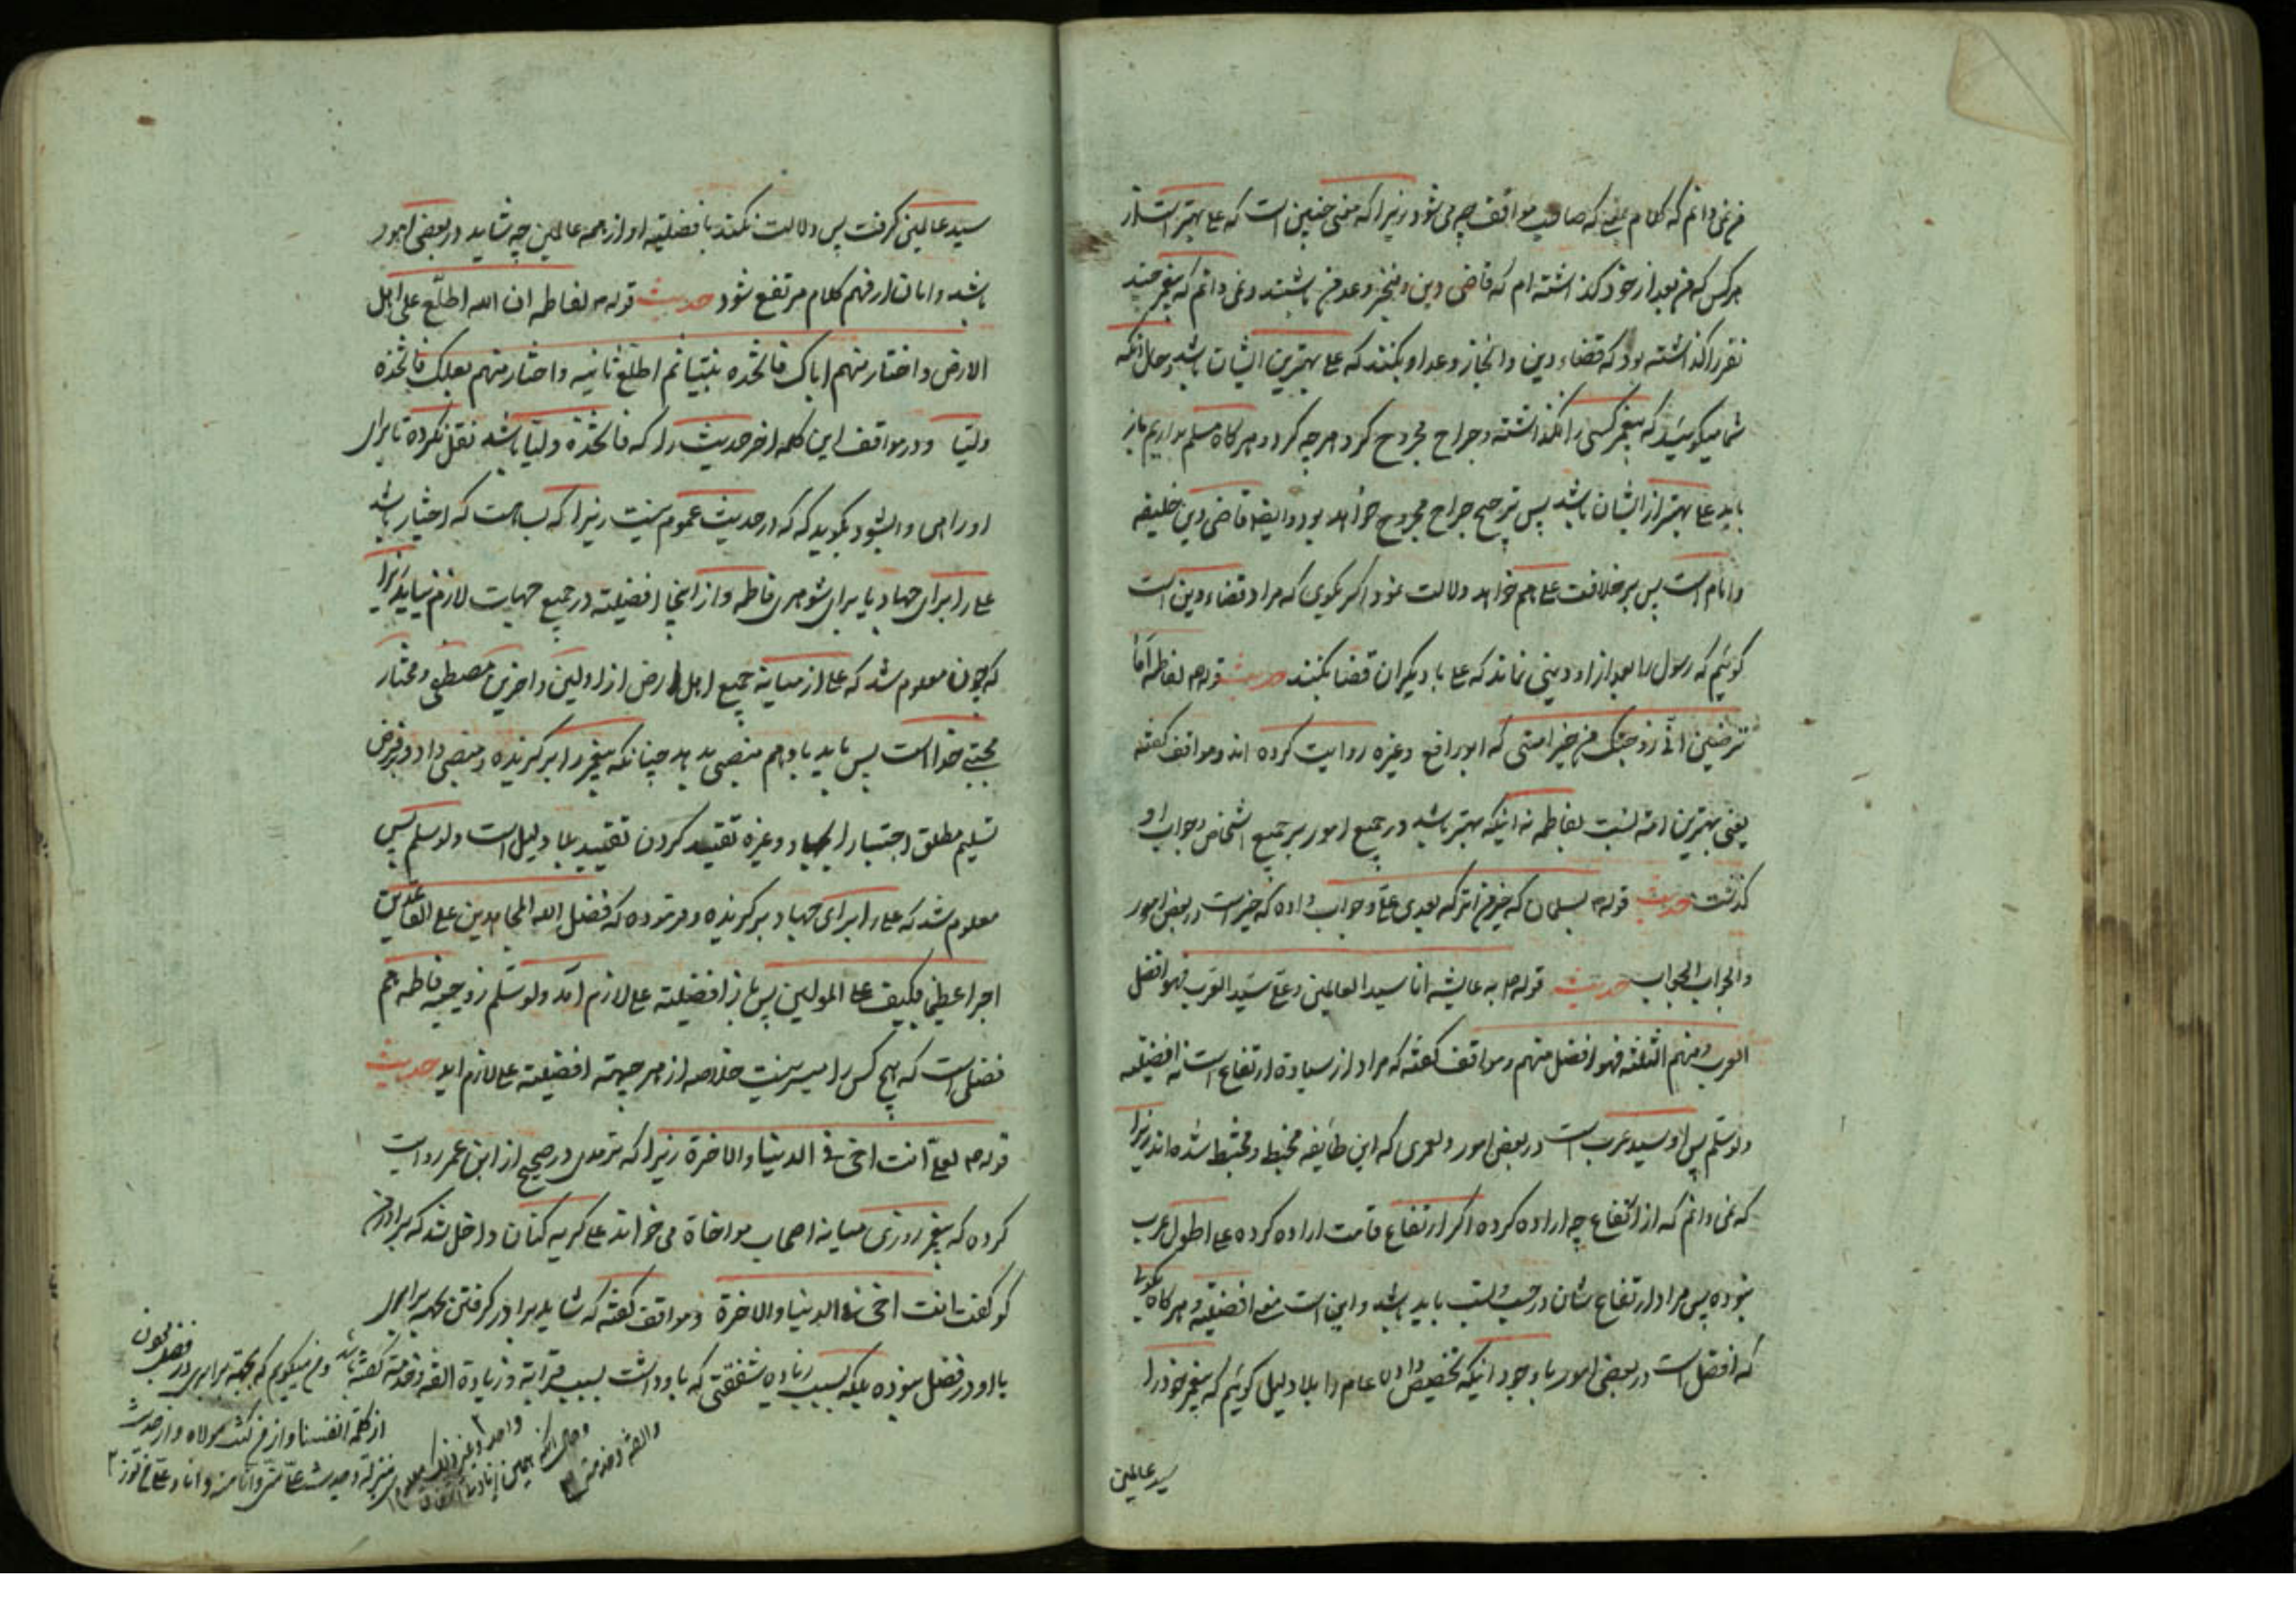 من نمی دانم که کلام یعنی که صاحب مواقف چه می شود زیرا که معنی چنین است که علی بهتر است از
هرکس که من بعد از خود گذاشته ام که قاضی دین و منجز وعد من باشند و نمی دانم که پیغمبر چند
نفر را گذاشته بود که قضاء دین و انجاز وعد او بکنند که علی بهترین ایشان باشد و حال آنکه
شما میگویید که پیغمبر کسی را نگذاشته و جراح مجروح کرد هرچه کرد و هرگاه مسلم داریم باز
باید علی بهتر از ایشان باشد پس ترجیح جراح مجروح خواهد بود و ایضا قاضی دین خلیفه
و امام است پس بر خلافت علی هم خواهد دلالت نمود اگر بگوی که مراد قضاء دین است
گوئیم که رسول را بعد از او دینی نماند که علی با دیگران قضا بکنند حدیث قوله م لفاطمه اما
ترضین انی زوجتک من خیر امتی که ابورافع و غیره روایت کرده اند و مواقف گفته
یعنی بهترین امة نسبت بفاطمه نه اینکه بهتر باشد در جمیع امور بر جمیع اشخاص و جواب او
گذشت حدیث قوله م لسلمان که خیر من اترکه بعدی علی و جواب داده که خیر است در بعض امور
والجواب الجواب حدیث قوله م به عایشه انا سید العالمین و علی سید العرب فهو افضل
العرب و منهم الثلثه فهو افضل منهم و مواقف گفته که مراد از سیادة ارتفاع است نه افضلیة
ولو سلم پس او سید عرب است در بعض امور و لعمری که این طایفه مخبط و مختبط شده اند زیرا
که نمی دانم که از ارتفاع چه اراده کرده اگر ارتفاع قامت اراده کرده علی اطول عرب
نبوده پس مراد ارتفاع شان در حسب و نسب باید باشد و این است معنی افضلیة و هرگاه بگوید
که افضل است در بعضی امور با وجود اینکه تخصیص دادن عام را بلا دلیل گوئیم که پیغمبر خود را
سید عالمین
سید عالمین گرفت پس دلالت نکند بافضلیة او از همه عالمین چه شاید در بعضی امور
باشد و امان از فهم کلام مرتفع شود حدیث قوله م لفاطمه ان الله اطلع علی اهل
الارض و اختار منهم اباک فاتخذه نبیا ثم اطلع ثانیه و اختار منهم بعلک فاتخذه
ولیا و در مواقف این کلمه اخر حدیث را که فاتخذه ولیا باشد نقل نکرده تا برای
او راهی وا بشود بگوید که که در حدیث عموم نیست زیرا که بسا است که اختیار باشد
علی را برای جهاد یا برای شوهری فاطمه و از اینجا افضلیة در جمیع جهات لازم نیاید زیرا
که چون معلوم شد که علی از میانه جمیع اهل ارض از اولین و اخرین مصطفی و مختار
مجتبی خدا است پس باید باو هم منصبی بدهد چنانکه پیغمبر را برگزیده و منصبی داد و بر فرض
تسلیم مطلق اجتبا را بجهاد و غیره تقیید کردن تقیید بلا دلیل است ولو سلم پس
معلوم شد که علی را برای جهاد برگزیده و فرموده که فضل الله المجاهدین علی القاعدین
اجرا عظیما فکیف علی المولین پس باز افضلیة علی لازم آمد ولو سلم زوجیه فاطمه هم
فضلی است که هیچ کس را میسر نیست خلاصه از هر جهة افضلیة علی لازم اید حدیث
قوله م لعلی انت اخی فی الدینا والاخرة زیرا که ترمدی در صحیح از ابن عمر روایت
کرده که پیغمبر روزی میانه اصحاب مواخاة می خواند علی گریه کنان داخل شد که برادر من
کو گفت انت اخی فی الدینا والاخرة و مواقف گفته که شاید برادر گرفتن بجهة برابری
با او در فضل نبوده بلکه بسبب زیاده شفقتی که باو داشت بسبب قرابة و زیادة الفة و خدمة گفته باشد و من میگویم که بجهة برابری در فضل چون
از کلمة انفسنا و از من کنت مولاه و از حدیث
منزلة و حدیث علی منی و انا منه و انا و علی من نور
واحد و غیر ذلک معلوم
و حال انکه همین
والفة و خدمت